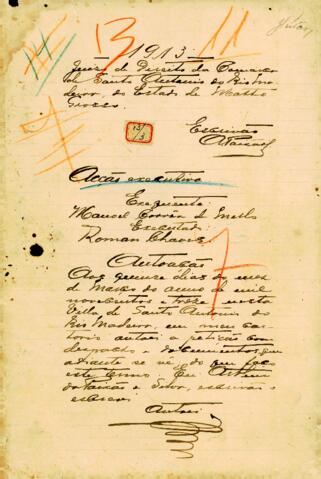 13 — 1913 — 11
Juizo de Direito da Comarca
de Santo Antonio do Rio Ma-
deira, do Estado de Matto
Grosso.
13/3
Escrivão
Acção executiva
Exequente
Manoel Corrêa de Mello
Executado
Roman Chaves
Autoação
Aos quinze dias do mez
de Março do anno de mil
novecentos e treze nesta
Villa de Santo Antonio do
Rio Madeira, em meu car-
torio autoei a petição com
despacho e documentos que
adiante se vê do que faço
este termo. Eu
da Paixão e Silva, escrivão o
escrevi.
Autoei